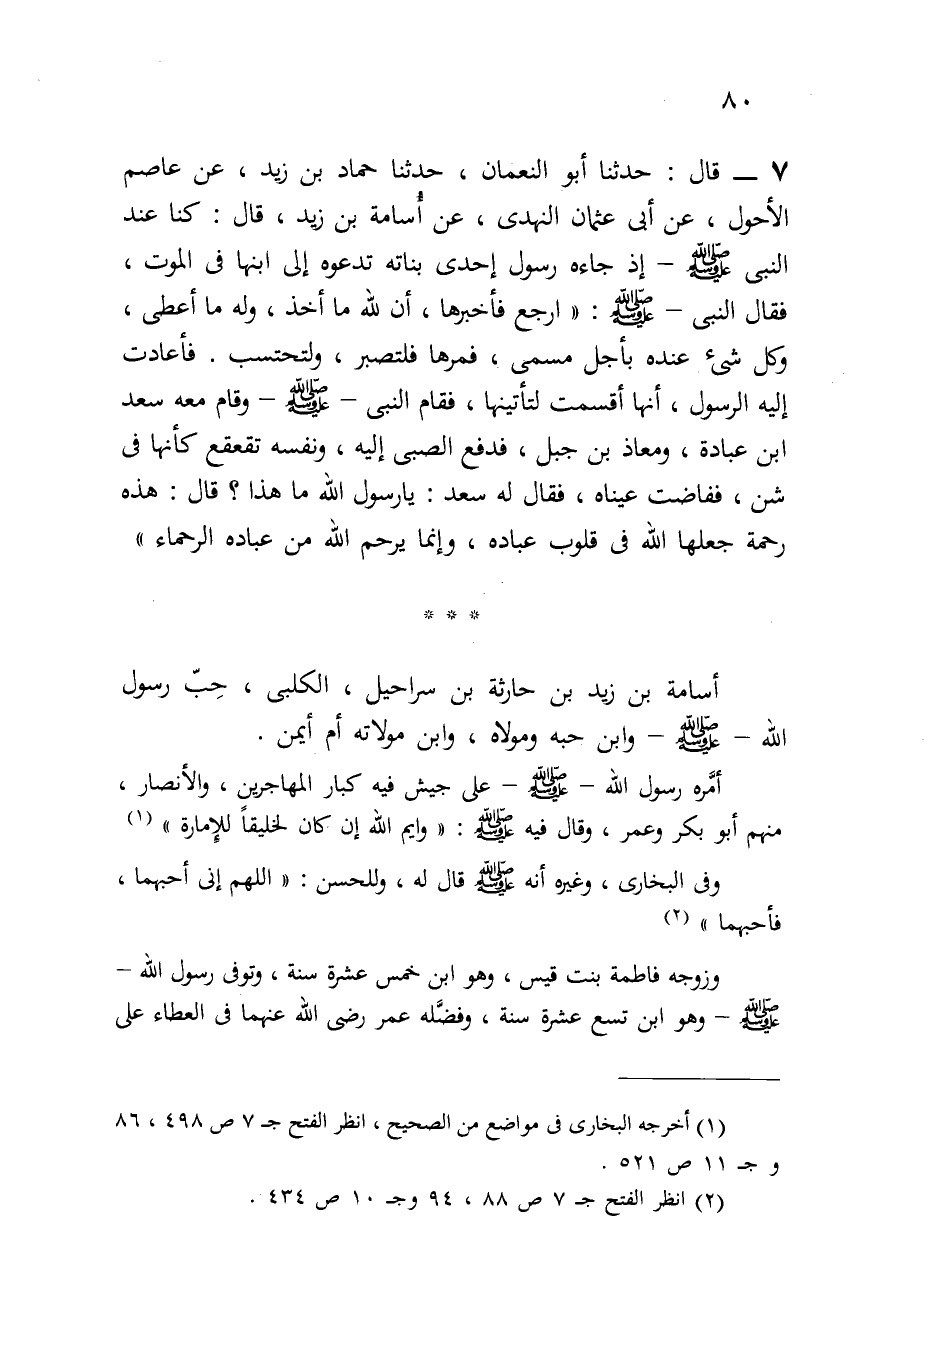 ٨٠
٧ ـــ قال : حدثنا أبو النعمان ، حدثنا حماد بن زيد ، عن عاصم
الأحول ، عن أبى عثمان النهدى ، عن أُسامة بن زيد ، قال : كنا عند
النبى ﷺ – إذ جاءه رسول إحدى بناته تدعوه إلى ابنها فى الموت ،
فقال النبى – ﷺ : « ارجع فأخبرها ، أن لله ما أخذ ، وله ما أعطى ،
وكل شىء عنده بأجل مسمى ، فمرها فلتصبر ، ولتحتسب . فأعادت
إليه الرسول ، أنها أقسمت لتأتينها ، فقام النبى – ﷺ – وقام معه سعد
ابن عبادة ، ومعاذ بن جبل ، فدفع الصبى إليه ، ونفسه تقعقع كأنها فى
شن ، ففاضت عيناه ، فقال له سعد : يارسول الله ما هذا ؟ قال : هذه
رحمة جعلها الله فى قلوب عباده ، وإنما يرحم الله من عباده الرحماء »
* * *
أسامة بن زيد بن حارثة بن سراحيل ، الكلبى ، حِبّ رسول
الله – ﷺ – وابن حبه ومولاه ، وابن مولاته أم أيمن .
أمَّره رسول الله – ﷺ – على جيش فيه كبار المهاجرين ، والأنصار ،
منهم أبو بكر وعمر ، وقال فيه ﷺ : « وايم الله إن كان لخليقاً للإمارة » (١)
وفى البخارى ، وغيره أنه ﷺ قال له ، وللحسن : « اللهم إنى أحبهما ،
فأحبهما » (٢)
وزوجه فاطمة بنت قيس ، وهو ابن خمس عشرة سنة ، وتوفى رسول الله –
ﷺ – وهو ابن تسع عشرة سنة ، وفضَّله عمر رضى الله عنهما فى العطاء على
(١) أخرجه البخارى فى مواضع من الصحيح ، انظر الفتح جـ ٧ ص ٤٩٨ ، ٨٦
و جـ ١١ ص ٥٢١ .
(٢) انظر الفتح جـ ٧ ص ٨٨ ، ٩٤ وجـ ١٠ ص ٤٣٤ .